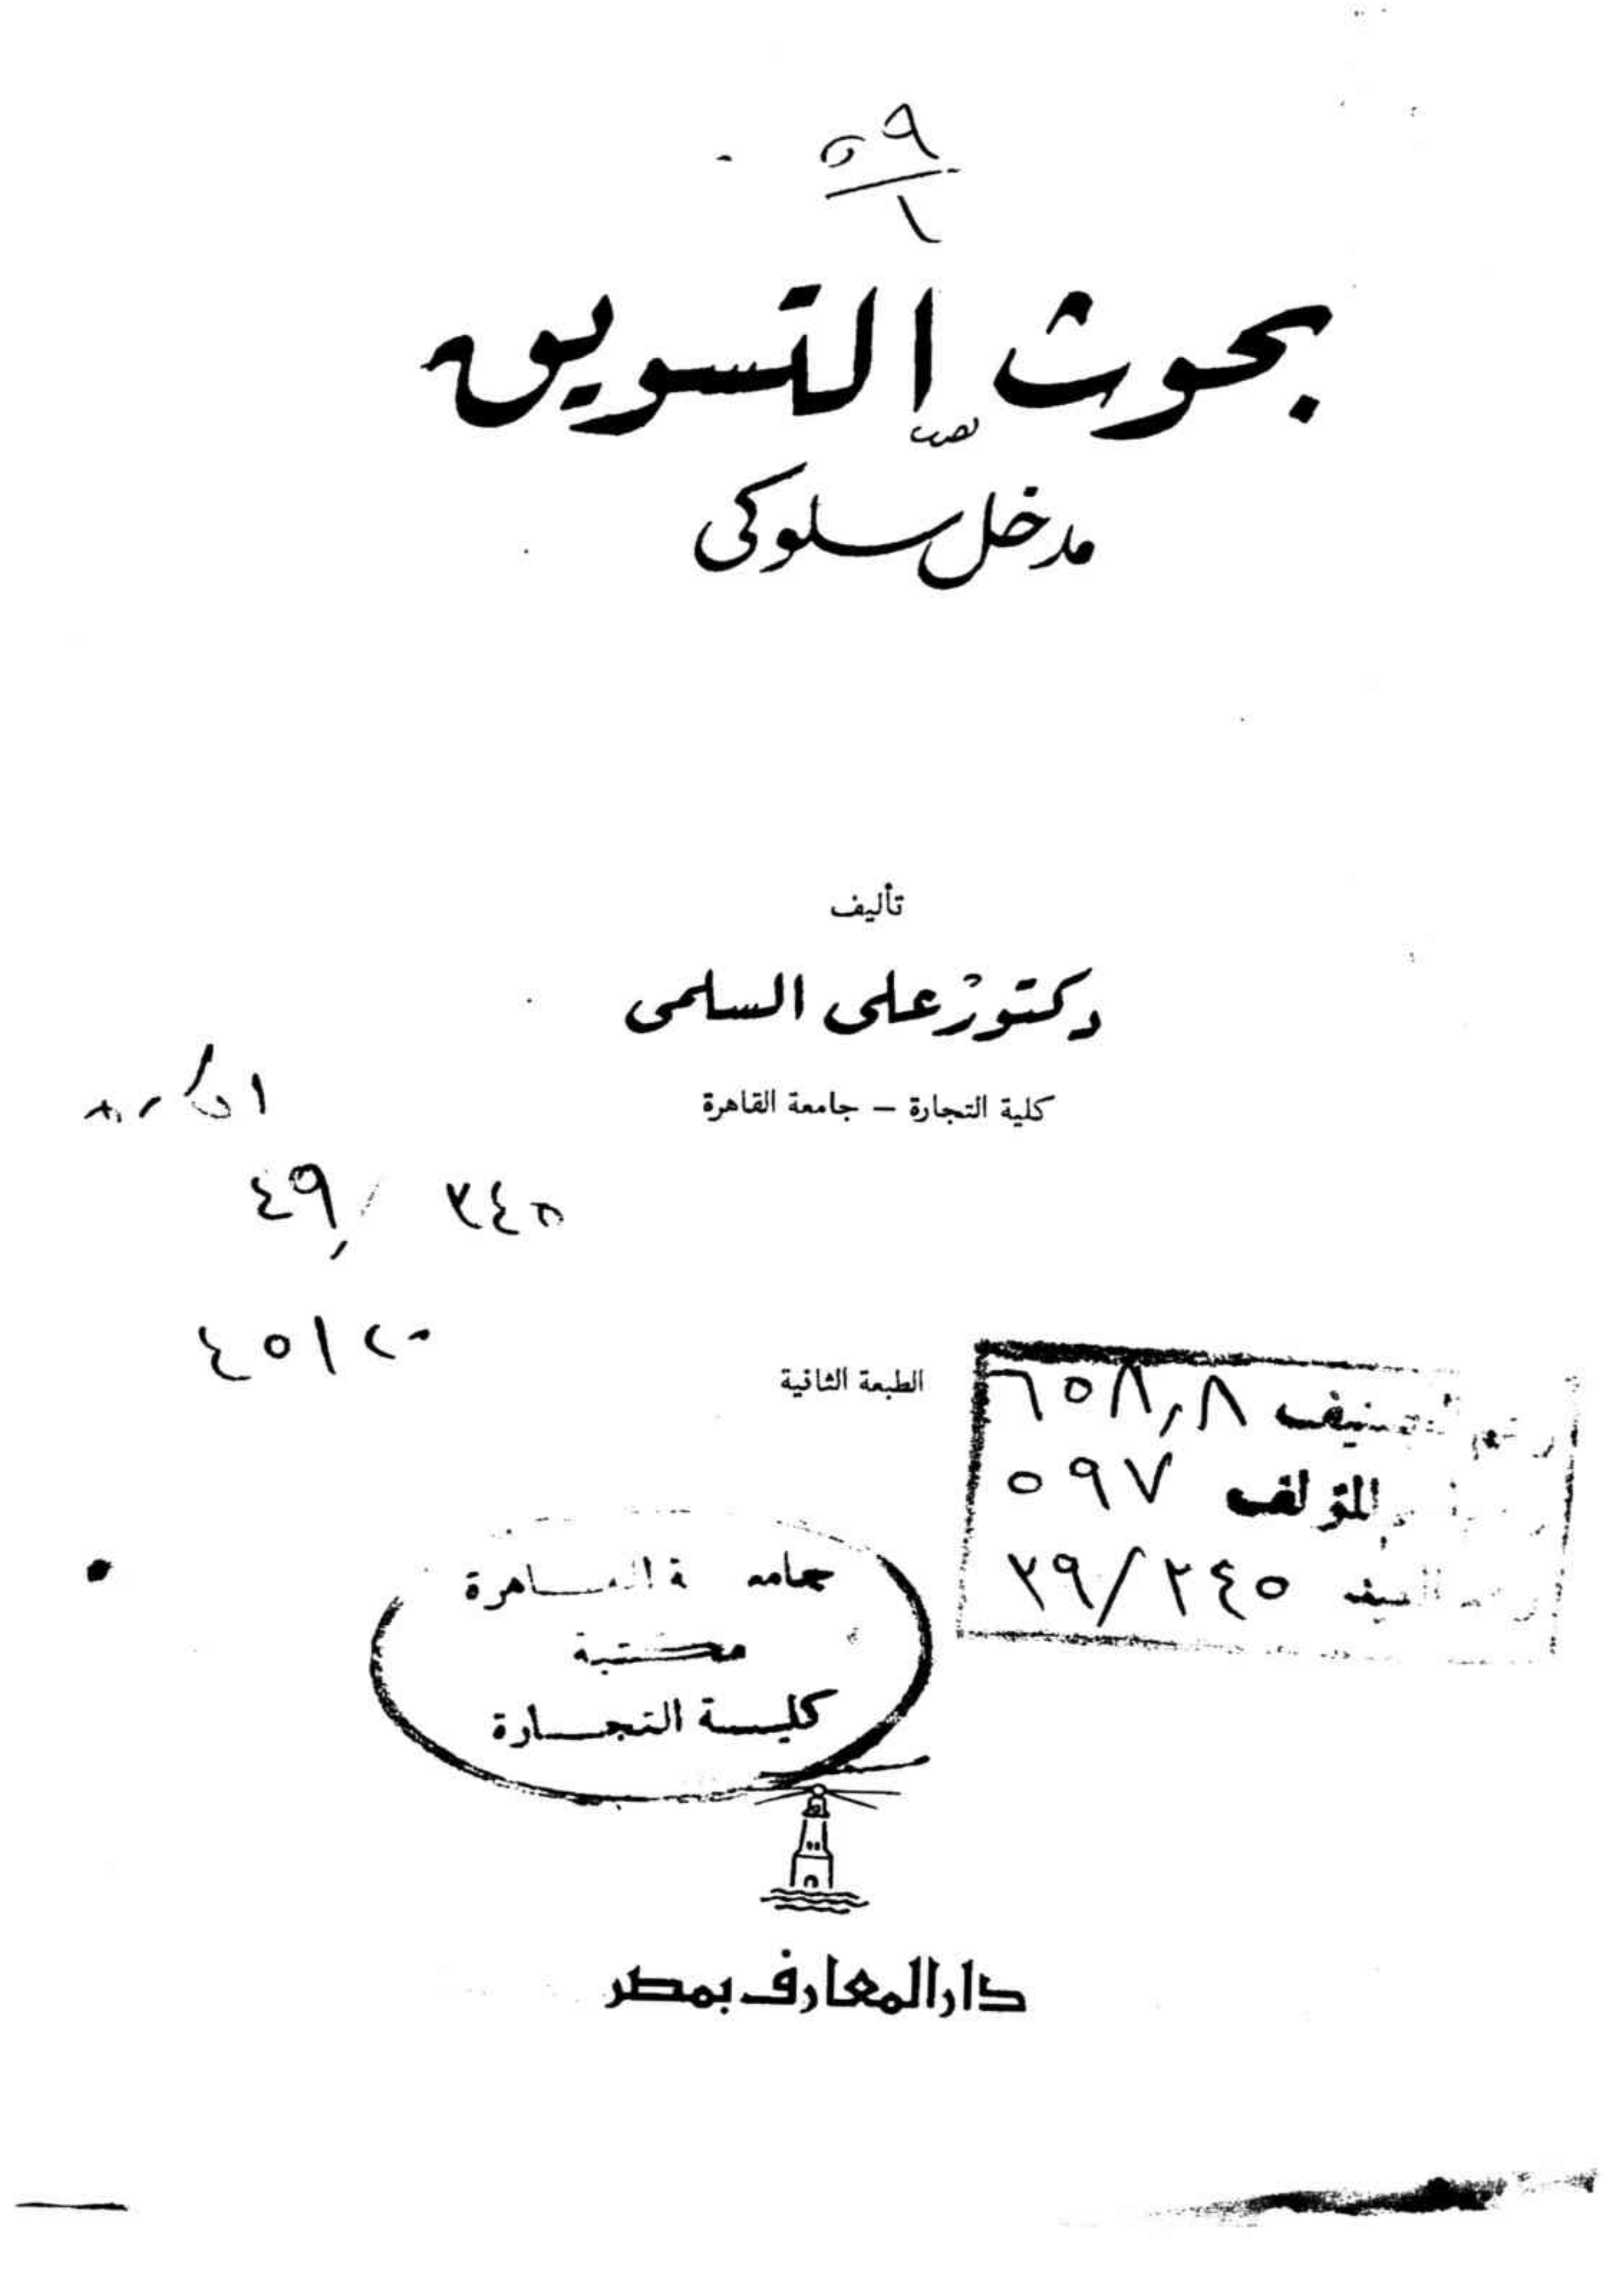 بحوث التسويق
مدخل سلوكى
تأليف
دكتور على السلمى
كلية التجارة – جامعة القاهرة
٤٥١٢٠
الطبعة الثانية
التصنيف ٦٥٨,٨
المؤلف ٥٩٧
٢٩/٢٤٥
جامعة القاهرة
مكتبة
كليـــة التجـــارة
دار المعارف بمصر